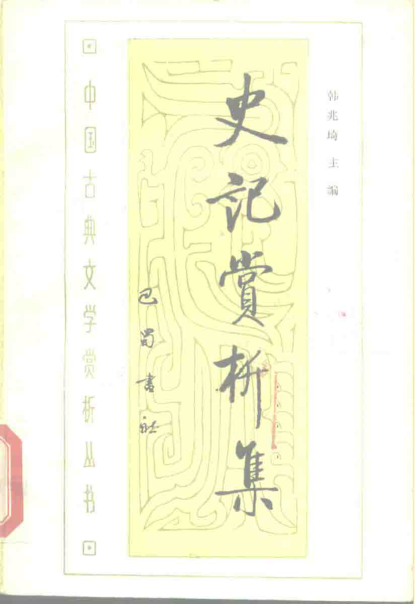 韩兆琦 主编
史记赏析集
巴蜀书社
中国古典文学赏析丛书